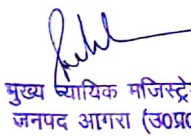 मुख्य न्यायिक मजिस्ट्रे
जनपद आगरा (उ0प्र0